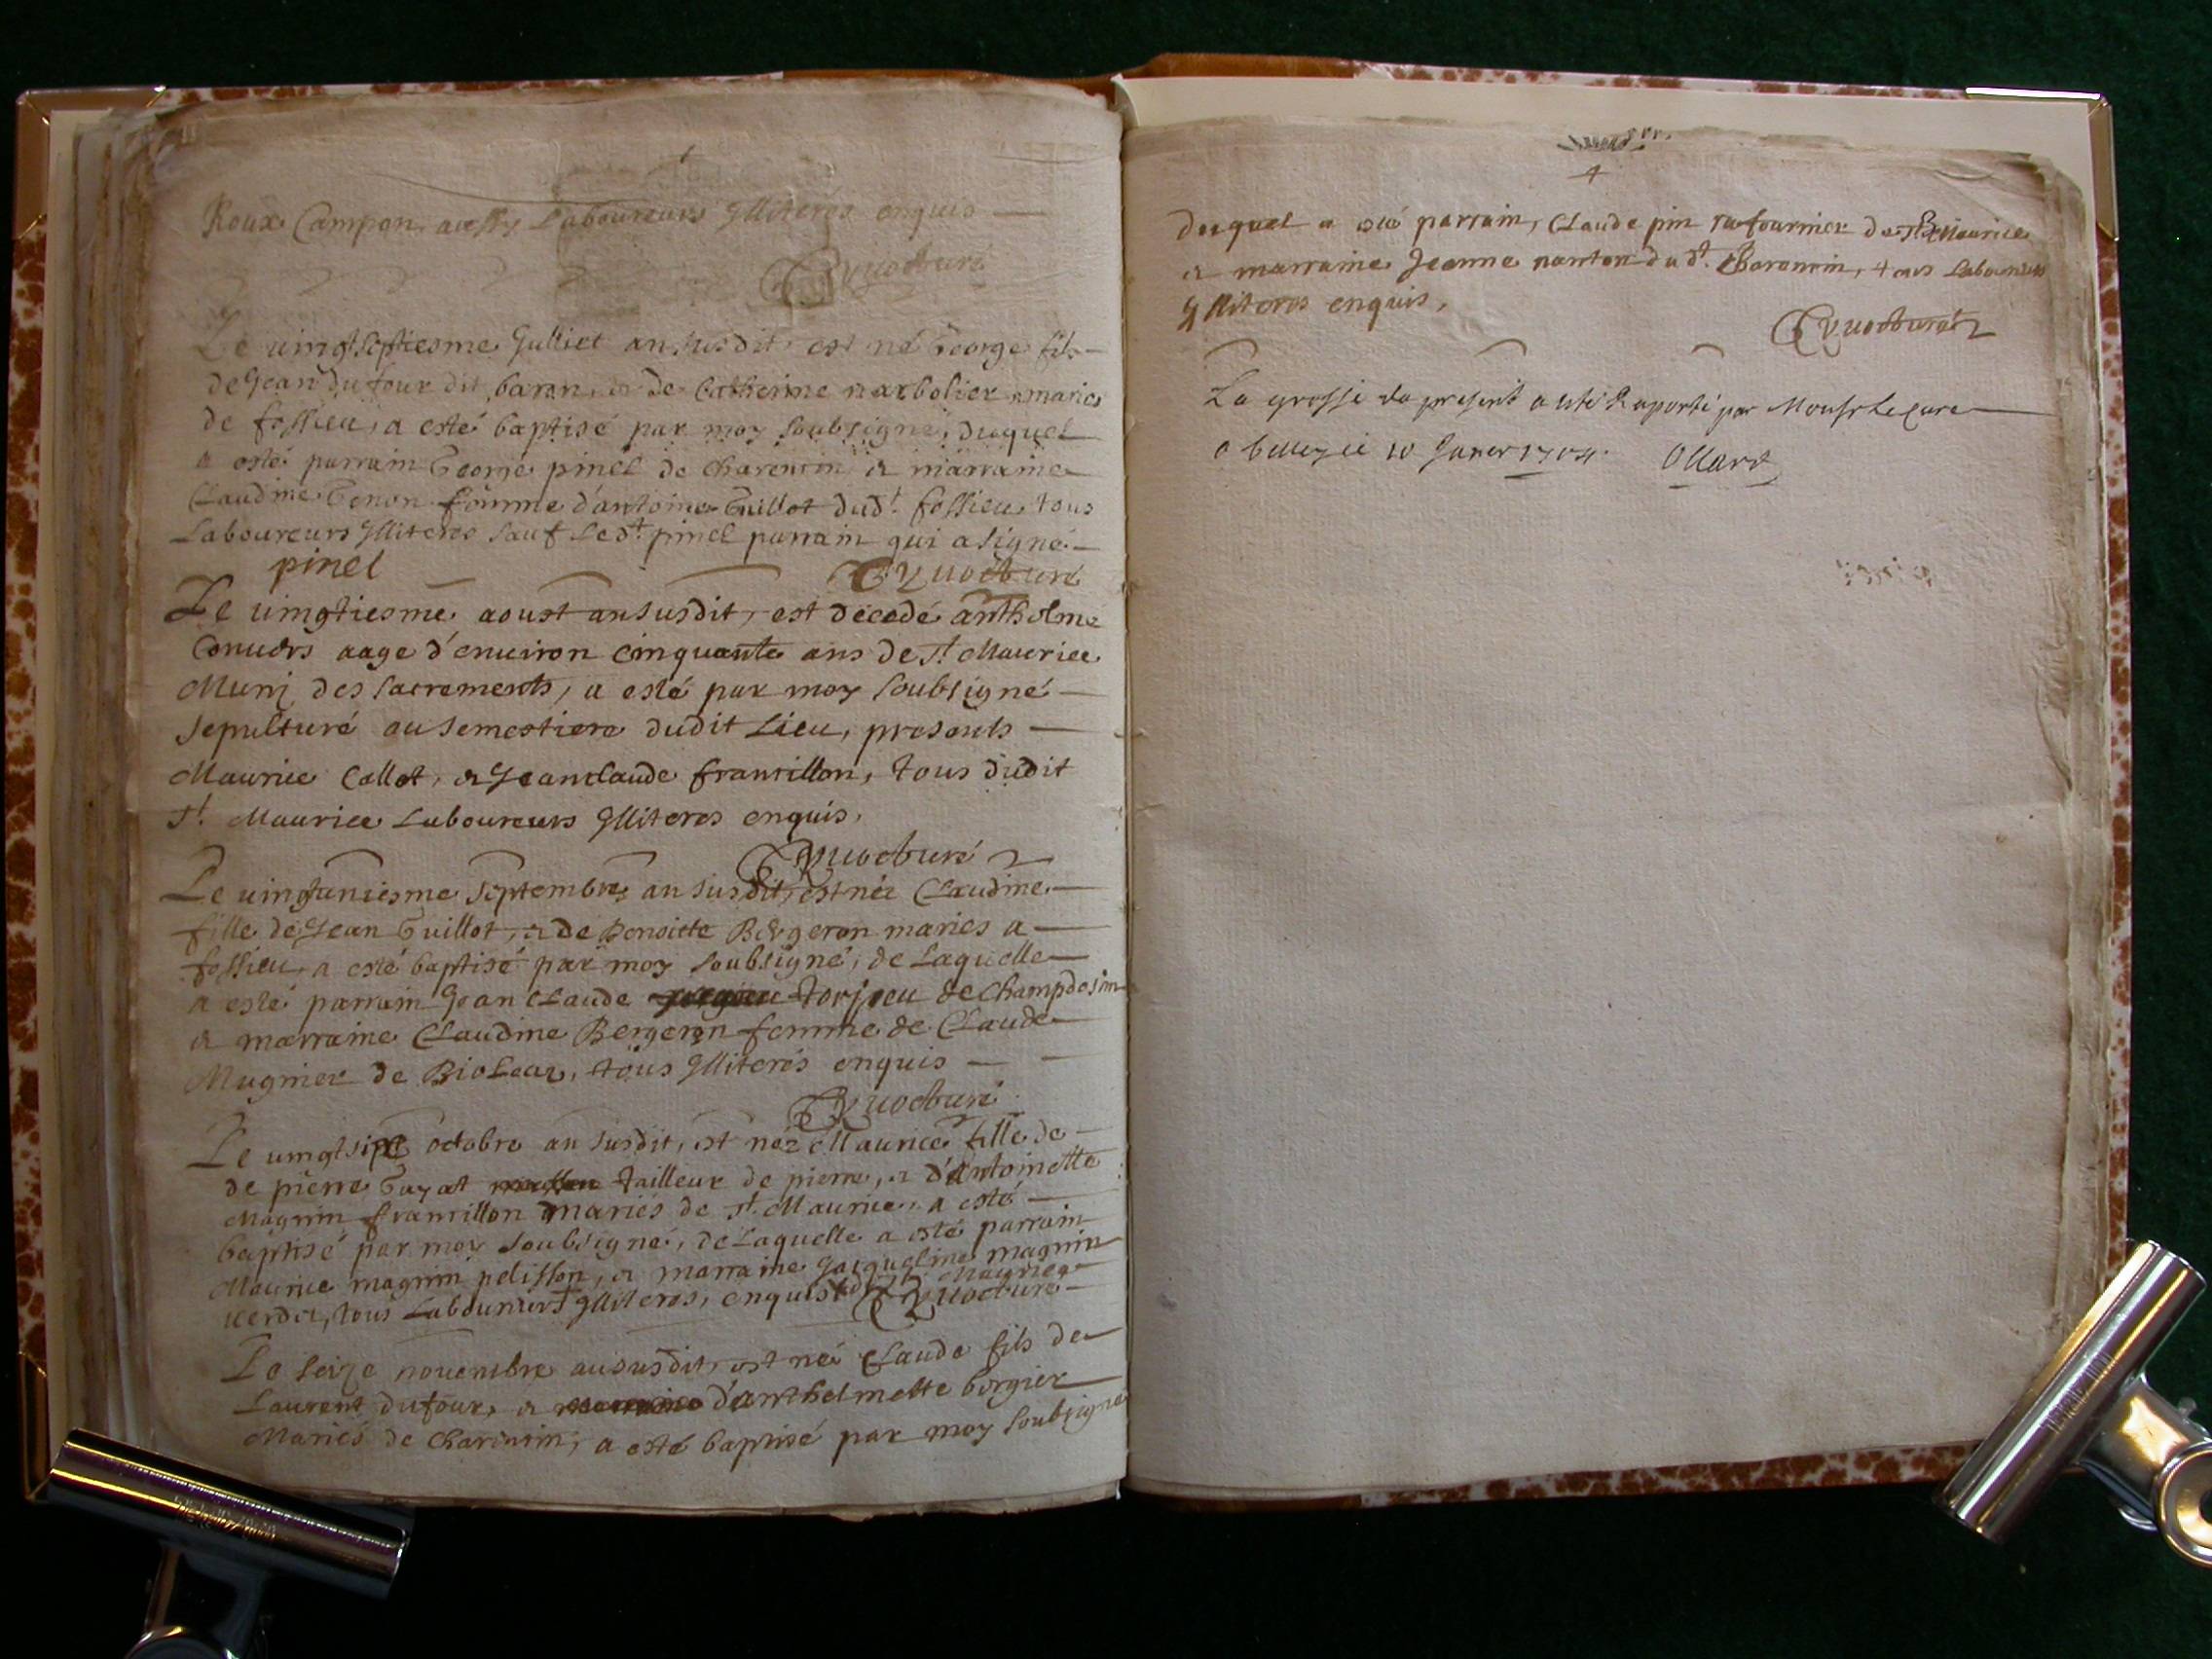 Roux Campon aussy Laboureurs Illiterés enquis
Le uingtseptiesme Julliet an susdit est né George fils
de Jean Dufour dit baron, & de Catherine narbolier mariés
de fossieu, a esté baptisé par moy soubsigné, duquel
a esté parrain George pinel de Charencin & marraine
Claudine Genon femme d'antoine Guillot dud.t fossieu tous
Laboureurs Illiteres sauf Led.t pinel parrain qui a signé
pinel
Le uingtiesme aoust an susdit, est décedé anthelme
aage d'enuiron cinquante ans de S.t Maurice
Muni des sacrements, a esté par moy soubsigné
sepulturé au semestiere dudit Lieu, presents
Maurice Collet, & Jeanclaude francillon, tous dudit
S.t Maurice Laboureurs Illiteres enquis,
Le uingtuniesme Septembre an susdit, est née Claudine
fille de Jean Guillot, & de Benoiste Bergeron mariés a
fossieu, a esté baptisé par moy soubsigné, de Laquelle
a esté parrain Jean Claude torjeu de Champdosin
& marraine Claudine Bergeron femme de Claude
Mugnier de Bioleaz, tous Illiterés enquis
Le uingtsix octobre an susdit, est née Maurice fille de
de pierre Gayat tailleur de pierre, & d'antoinette
Magnin francillon mariés de S.t Maurice, a esté
baptisé par moy soubsigné, de Laquelle a esté parrain
Maurice magnin pelisson, & marraine Jacqueline magnin
uerdet, tous Laboureurs Illiteres, enquis Maurice
Le seize nouembre an susdit, est né Claude fils de
Laurent dufour, & d'anthelmette borgier
Mariés de Charencin, a esté baptisé par moy soubsigné
duquel a esté parrain, Claude pin de S.t Maurice
& marraine Jeanne nanton du d.t Charencin, tous Laboureurs
Illiteres enquis,
La grosse du present a esté Raporté par Monsr Le Cure
a belley ce 10 Januier 1704. Ollard